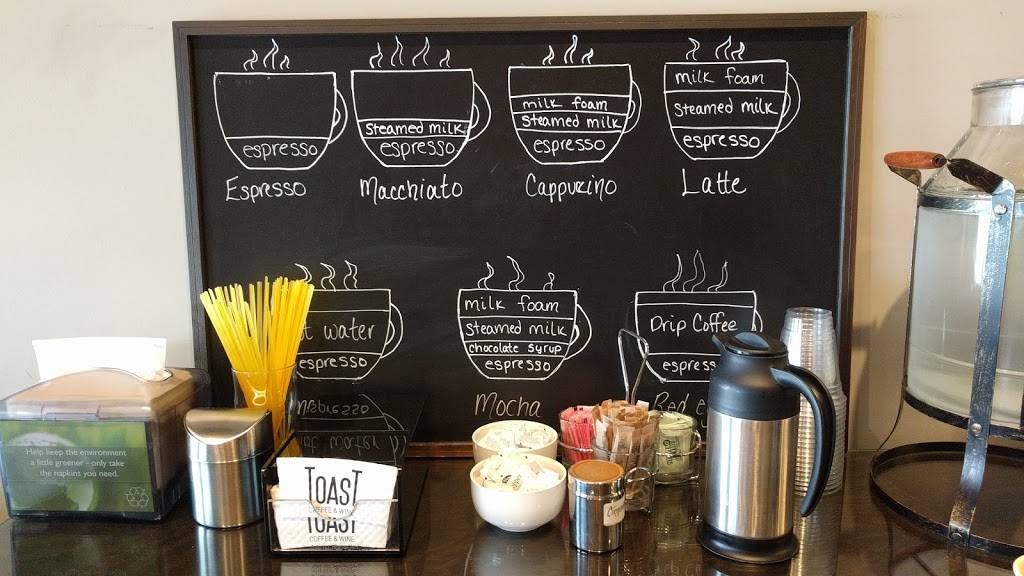 espresso
Espresso
steamed milk
espresso
Macchiato
milk foam
steamed milk
espresso
Cappucino
milk foam
steamed milk
espresso
Latte
t water
espresso
milk foam
steamed milk
chocolate syrup
espresso
Mocha
Drip Coffee
espress
Red e
Help keep the environment
a little greener - only take
the napkins you need.
TOAST
COFFEE & WINE
TOAST
COFFEE & WINE